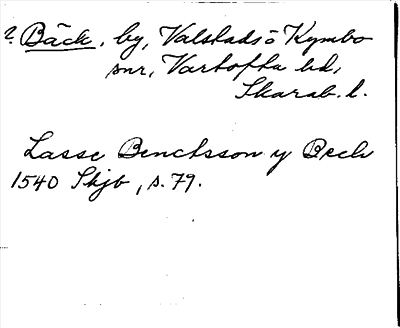 ? Bäck, by, Valstads o Kymbo
snr, Vartofta hd,
Skarab. l.
Lasse Benctsson y Bech
1540 Skjb, s. 79.